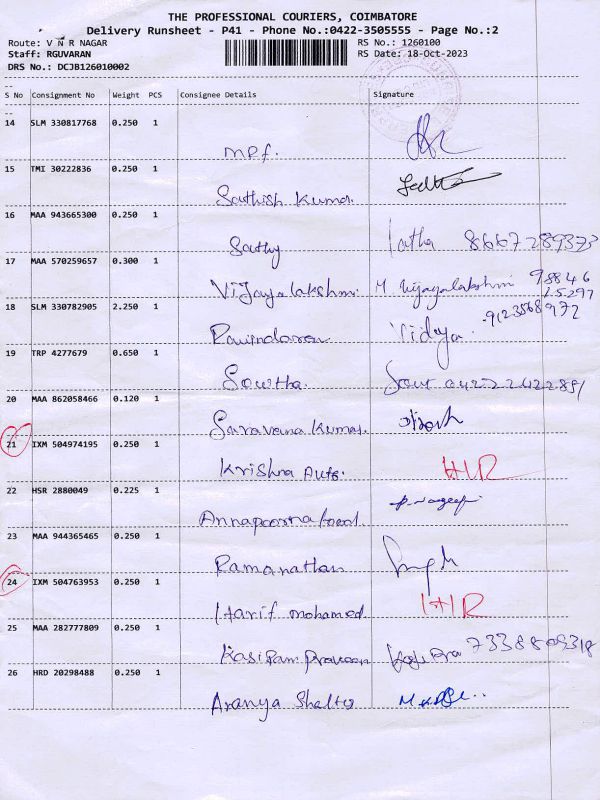 THE PROFESSIONAL COURIERS, COIMBATORE
Delivery Runsheet - P41 - Phone No.:0422-3505555 - Page No.:2
Route: V N R NAGAR RS No.: 1260100
Staff: RGUVARAN RS Date: 18-Oct-2023
DRS No.: DCJB126010002
S No Consignment No Weight PCS Consignee Details Signature
14 SLM 330817768 0.250 1
MRF.
15 TMI 30222836 0.250 1
Sathish Kumar.
16 MAA 943665300 0.250 1
Sathy latha 8667289373
17 MAA 570259657 0.300 1
Vijayalakshmi. M. Vijayalakshmi 98846
25297
18 SLM 330782905 2.250 1
Ravindaran Vidya. 9123568972
19 TRP 4277679 0.650 1
Sowtha. Sow 0422 2422891
20 MAA 862058466 0.120 1
Saravana Kumar.
21 IXM 504974195 0.250 1
Krishna Auto. HIR
22 HSR 2880049 0.225 1
Annapoorna food
23 MAA 944365465 0.250 1
Ramanathan
24 IXM 504763953 0.250 1
Harif mohamed HIR
25 MAA 282777809 0.250 1
Kasi Ram Praveen 7338809318
26 HRD 20298488 0.250 1
Aranya Shelter